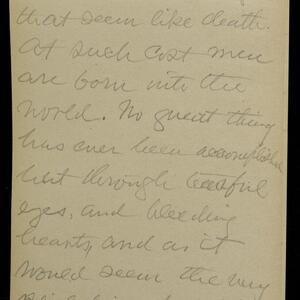 that seem like death.
At such cost men
are born into the
world. No great thing
has ever been accomplished
but through tearful
eyes, and bleeding
hearts, and as it
would seem the very